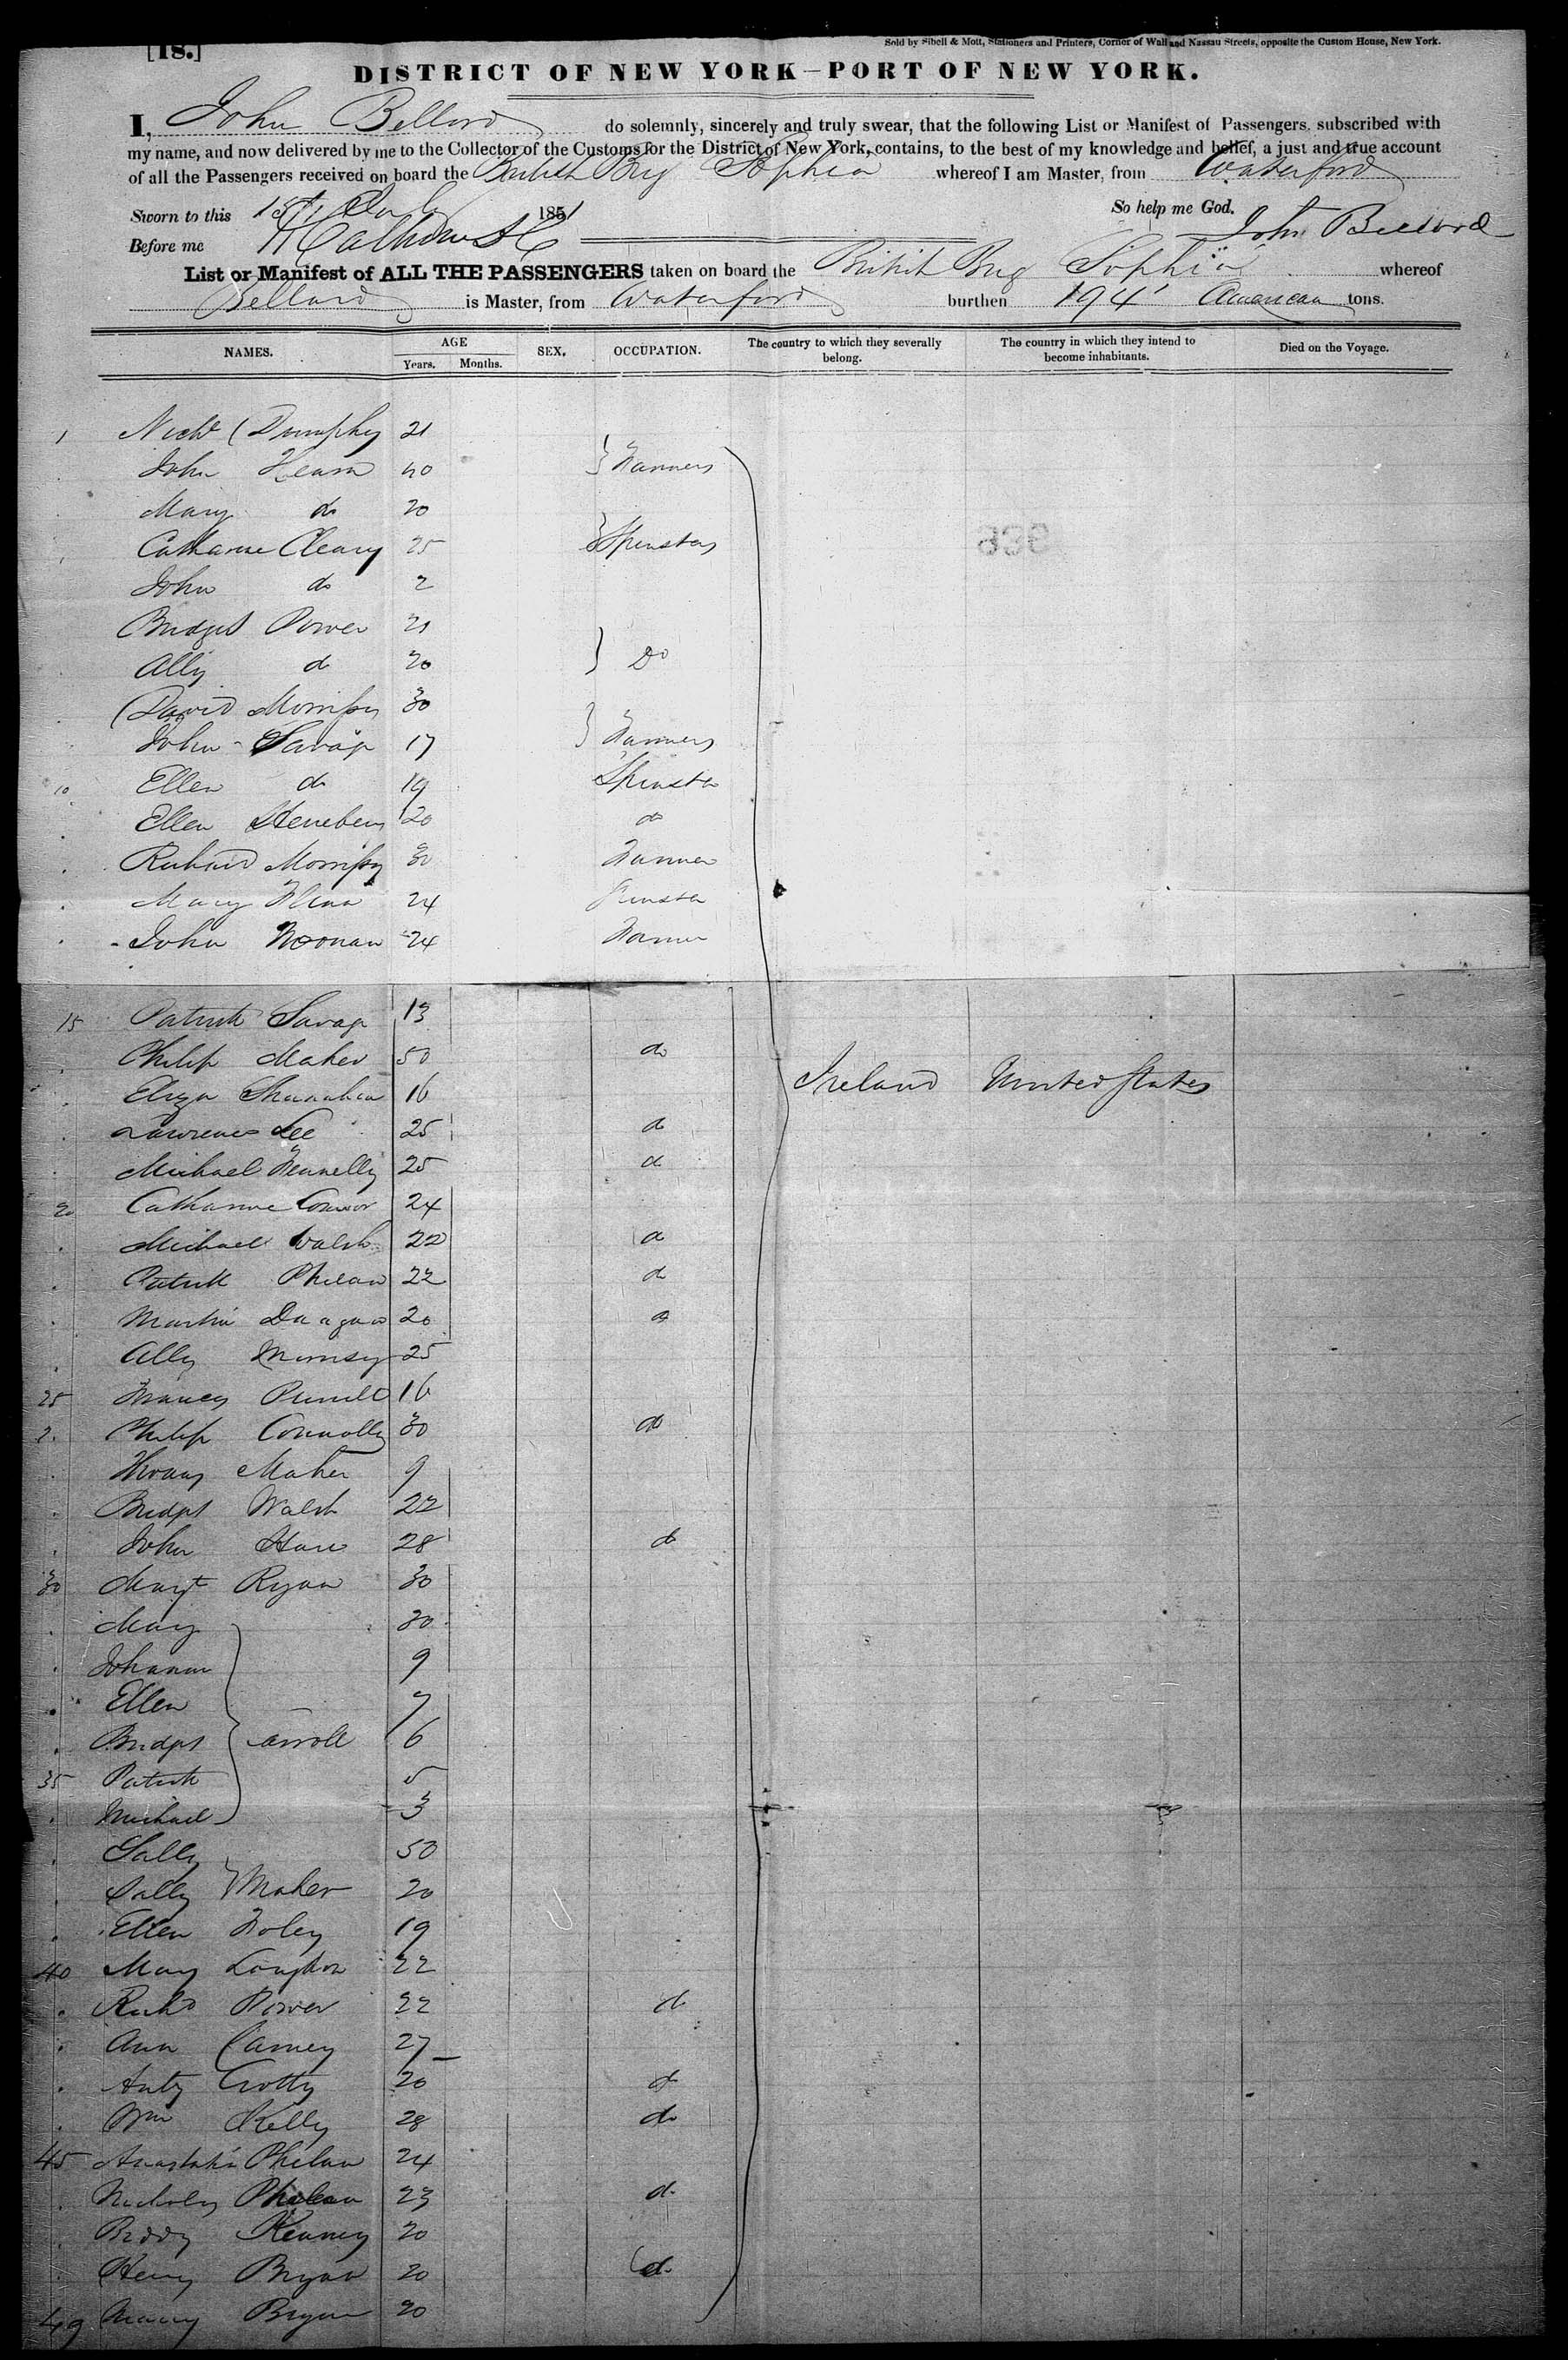 [18.]
Sold by Sibell & Mott, Stationers and Printers, Corner of Wall and Nassau Streets, opposite the Custom House, New York.
DISTRICT OF NEW YORK—PORT OF NEW YORK.
I, John Bellord do solemnly, sincerely and truly swear, that the following List or Manifest of Passengers, subscribed with
my name, and now delivered by me to the Collector of the Customs for the District of New York, contains, to the best of my knowledge and belief, a just and true account
of all the Passengers received on board the British Brig Sophia whereof I am Master, from Waterford
Sworn to this 1851 So help me God.
Before me John Bellord
List or Manifest of ALL THE PASSENGERS taken on board the British Brig Sophia whereof
Bellord is Master, from Waterford burthen 194 American tons.
NAMES. AGE Years. Months. SEX. OCCUPATION. The country to which they severally belong. The country in which they intend to become inhabitants. Died on the Voyage.
1 Dunphy 21
John Hearn 40 Farmers
Mary do 20
Catharine Cleary 25 Spinsters
John do 2
Bridget Power 21
Ally do 20 Do
David Morrissy 30
John Savage 17 Farmers
10 Ellen do 19 Spinster
Ellen 20 do
Richard Morrissy 30 Farmer
Mary Flinn 24 Spinster
John Noonan 24 Farmer
15 Patrick Savage 13
Philip Maher 50 do
Eliza Shanahan 16 Ireland United States
Lawrence Lee 25 do
Michael Fennelly 25 do
20 Catharine Connor 24
Michael Walsh 22 do
Patrick Phelan 22 do
Martin 20 do
Ally 25
25 Purcell 16
Philip Connolly 30 do
Maher 9
Bridget Walsh 22
John 28 do
30 Margt Ryan 30
Mary 30
Johanna 9
Ellen 7
Bridget Carroll 6
35 Patrick 5
Michael 3
Sally 50
Sally Maher 20
Ellen Foley 19
40 Mary 22
Richd Power 22 do
Ann Carney 27
Anty Crotty 20 do
Wm Kelly 28 do
45 Anastatia Phelan 24
Nicholas Phelan 23 do
Biddy Kenney 20
Henry Bryan 20 do
49 Bryan 20